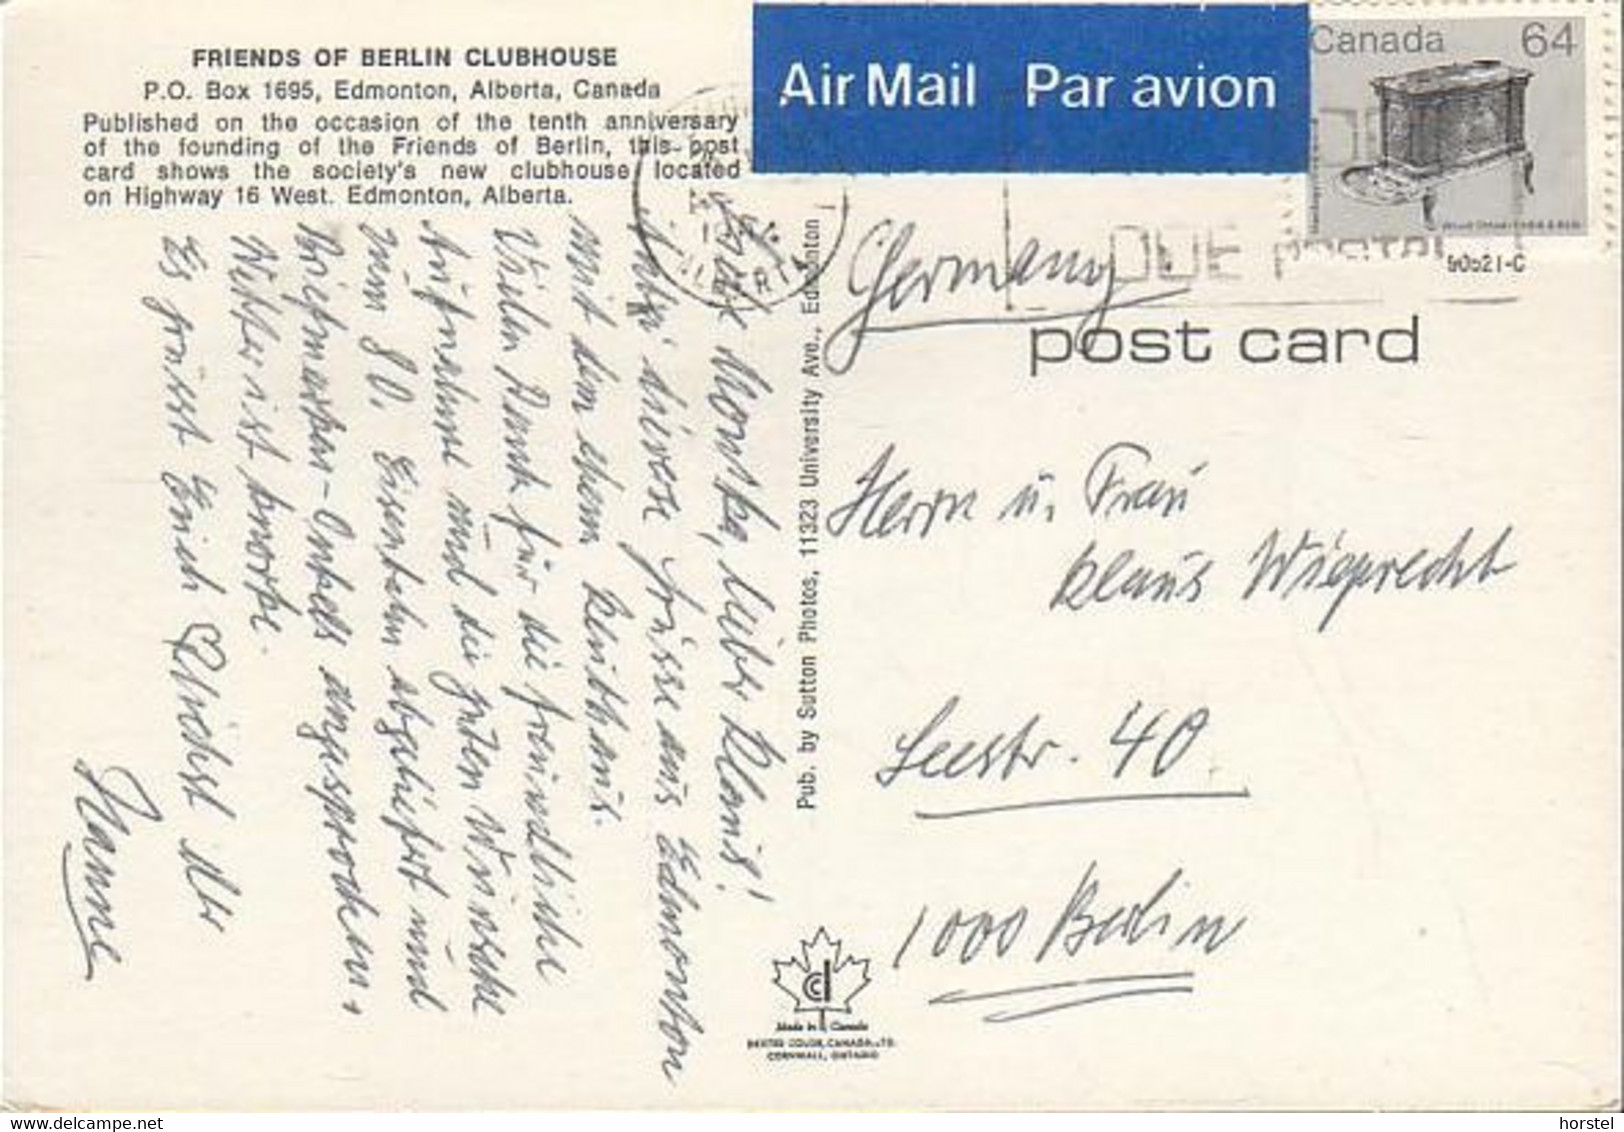 FRIENDS OF BERLIN CLUBHOUSE
P.O. Box 1695, Edmonton, Alberta, Canada
Published on the occasion of the tenth anniversary
of the founding of the Friends of Berlin, this post
card shows the society's new clubhouse located
on Highway 16 West. Edmonton, Alberta.
Air Mail Par avion
Canada 64
DUE POSTAL
90521-C
post card
Germany
Herrn u. Frau
Klaus Wieprecht
Seestr. 40
1000 Berlin
Pub. by Sutton Photos, 11323 University Ave., Edmonton
Monika, lieber Klaus!
diverse Grüsse aus Edmonton
mit dem
Vielen Dank für die freundliche
Aufnahme und die guten Wünsche
zum 80. Eisenbahn abgeliefert und
Briefmarken-Onkels angesprochen.
Wetter ist knorke.
Es grüsst Euch
Hanne
Made in Canada
DEXTER COLOR, CANADA, LTD.
CORNWALL, ONTARIO
horstel